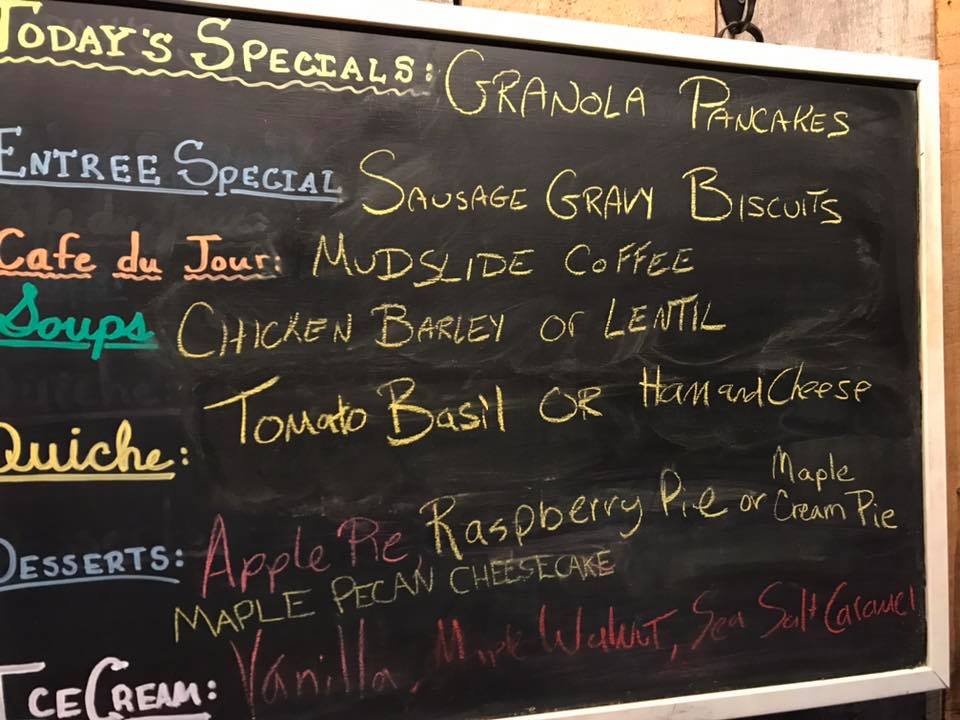 TODAY'S SPECIALS: GRANOLA PANCAKES
ENTREE SPECIAL SAUSAGE GRAVY BISCUITS
Cafe du Jour: MUDSLIDE COFFEE
Soups CHICKEN BARLEY or LENTIL
Quiche: Tomato Basil OR Ham and Cheese
DESSERTS: Apple Pie, Raspberry Pie or Maple Cream Pie
MAPLE PECAN CHEESECAKE
ICE CREAM: Vanilla, Maple Walnut, Sea Salt Caramel